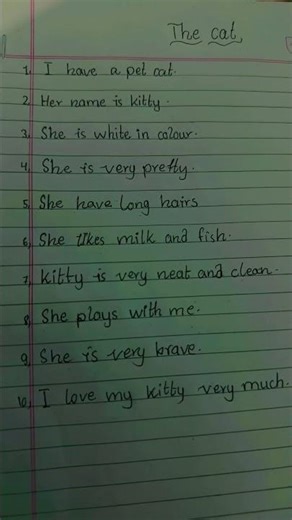 The cat
1, I have a pet cat.
2, Her name is kitty.
3, She is white in colour.
4, She is very pretty.
5, She have long hairs
6, She likes milk and fish.
7, Kitty is very neat and clean.
8, She plays with me.
9, She is very brave.
10, I love my kitty very much.